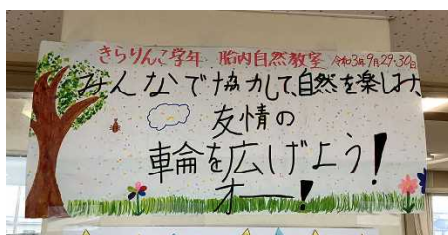 きらりん学年 胎内自然教室 令和3年9月29・30日
みんなで協力して、自然を楽しみ、
友情の
輪を広げよう!
オー!